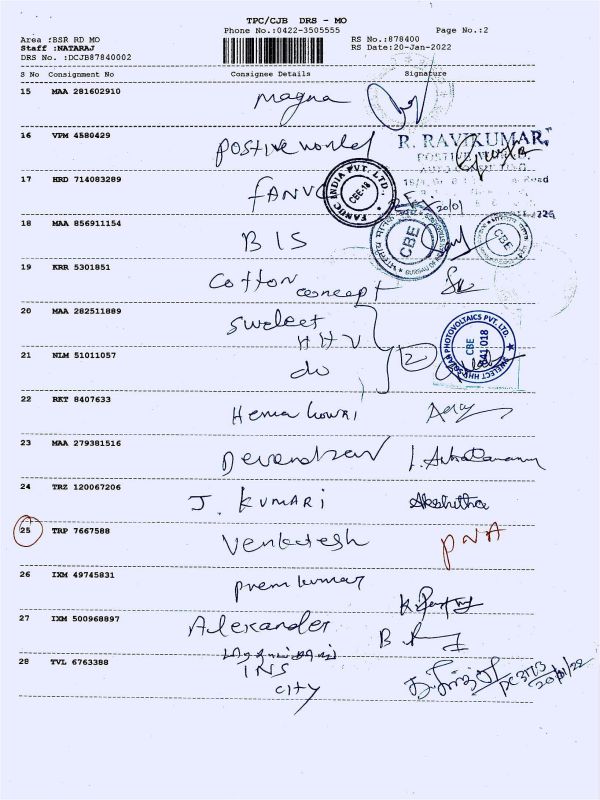 TPC/CJB DRS - MO
Phone No.:0422-3505555 Page No.:2
Area :BSR RD MO RS No.:878400
Staff :NATARAJ RS Date:20-Jan-2022
DRS No. :DCJB87840002
S No Consignment No Consignee Details Signature
15 MAA 281602910 Magna
16 VPM 4580429 Postive world
R. RAVIKUMAR,
17 HRD 714083289 FANUC
FANUC INDIA PVT. LTD. CBE-18
20/01
18 MAA 856911154 BIS
CBE
CBE
19 KRR 5301851 Cotton concept
20 MAA 282511889 Swelect HHV
SWELECT HHV SOLAR PHOTOVOLTAICS PVT. LTD. CBE 641 018
21 NLM 51011057 do 2
22 RKT 8407633 Hema Gowri
23 MAA 279381516 Devendran
24 TRZ 120067206 J. KUMARI Akshitha
25 TRP 7667588 Venkatesh PNA
26 IXM 49745831 Prem kumar
27 IXM 500968897 Alexander
28 TVL 6763388 INS
City PC 3173
20/01/22